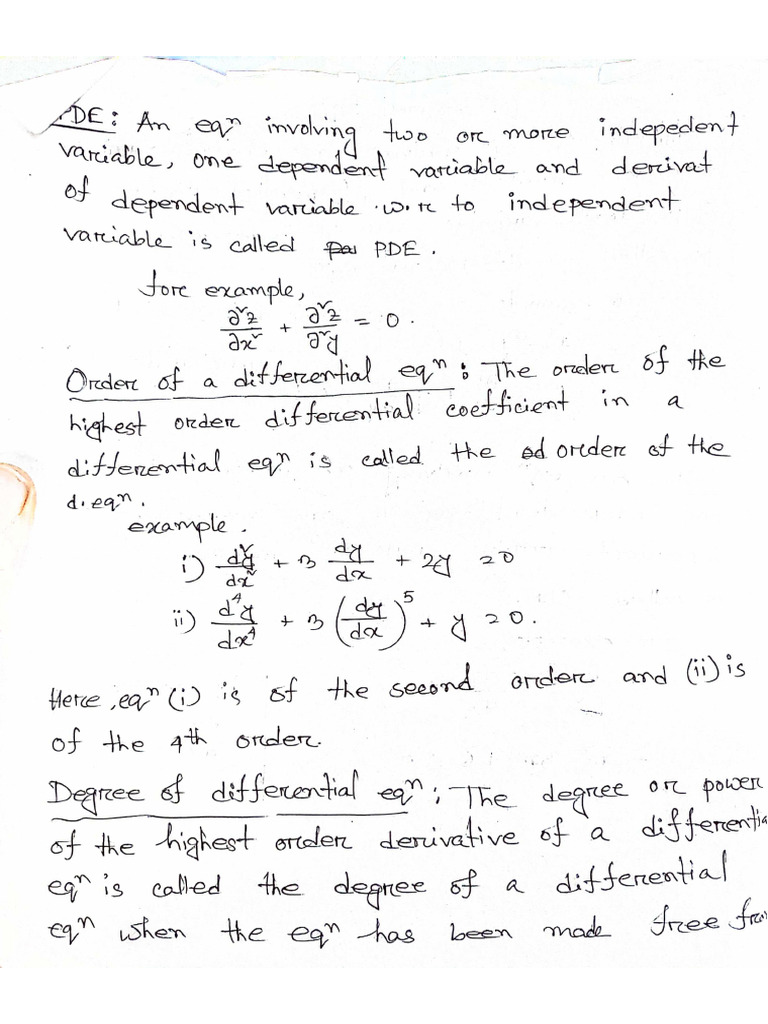 PDE: An eqⁿ involving two or more indepedent
variable, one dependent variable and derivat
of dependent variable w.r to independent
variable is called PDE.
for example,
∂²z/∂x² + ∂²z/∂²y = 0.
Order of a differential eqⁿ: The order of the
highest order differential coefficient in a
differential eqⁿ is called the order of the
d.eqⁿ.
example.
i) d²y/dx² + 3 dy/dx + 2y = 0
ii) d⁴y/dx⁴ + 3(dy/dx)⁵ + y = 0.
Here, eqⁿ (i) is of the second order and (ii) is
of the 4th order.
Degree of differential eqⁿ: The degree or power
of the highest order derivative of a differentia
eqⁿ is called the degree of a differential
eqⁿ when the eqⁿ has been made free from